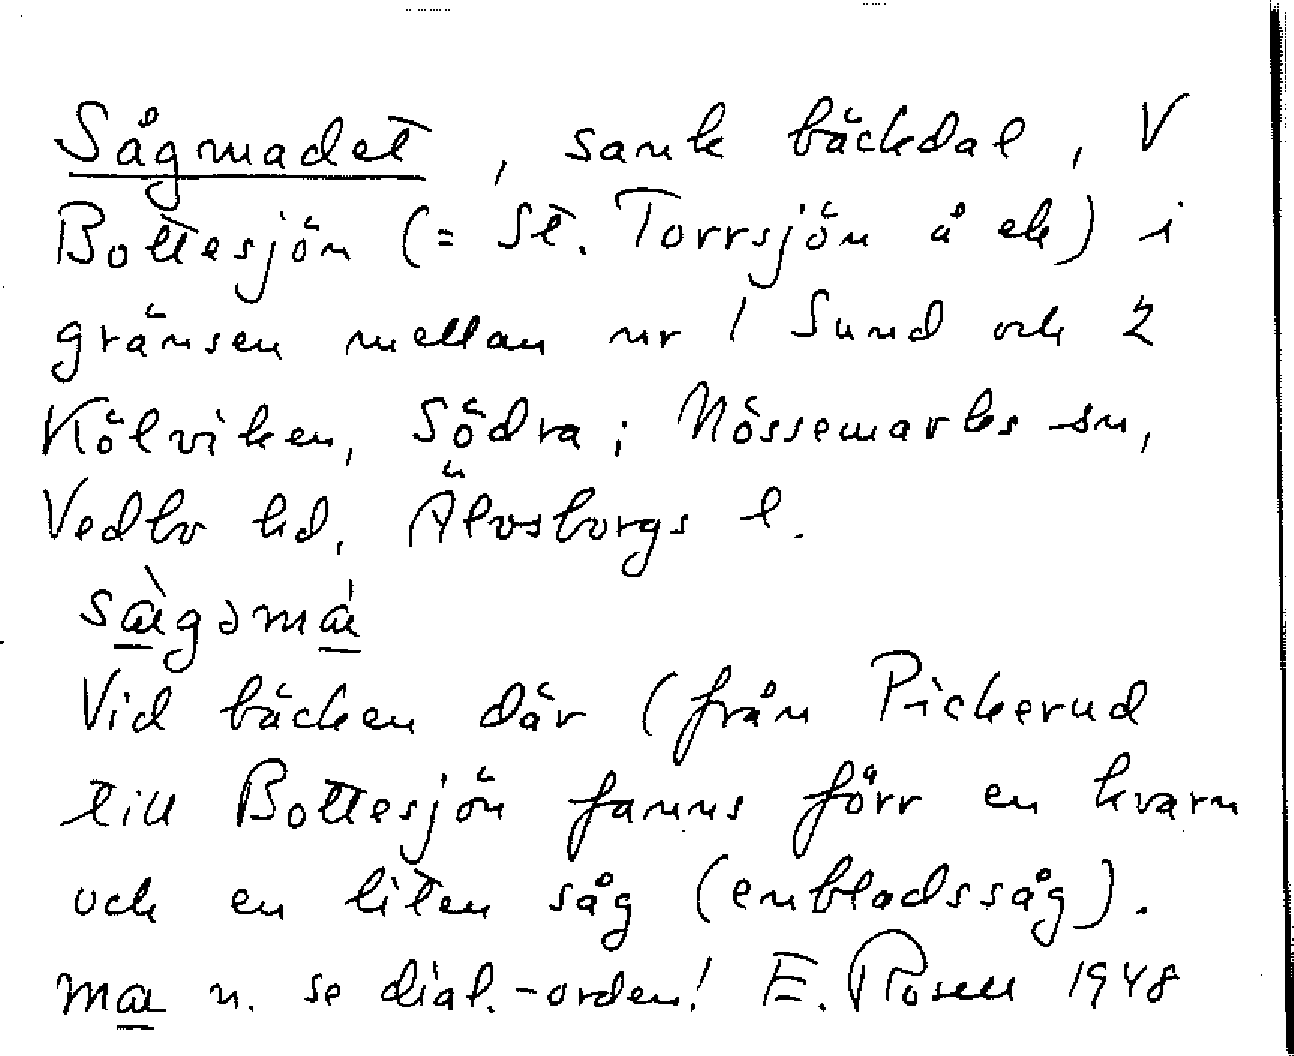 Sågmadet, sank bäckdal, V
Bottesjön (= St. Torrsjön å ek) i
gränsen mellan nr 1 Sund och 2
Kölviken, Södra; Nössemarks sn,
Vedbo hd, Älvsborgs l.
sægəmæ
Vid bäcken där (från Pickerud
till Bottesjön fanns förr en kvarn
och en liten såg (enbladssåg).
mæ n. se dial.-orden! E. Rosell 1948